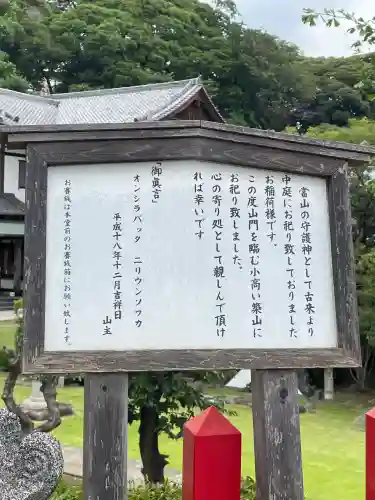 當山の守護神として古来より
中庭にお祀りして居りました
お稲荷様です。
この度山門を臨む小高い築山に
お祀り致しました。
心の寄り処として親しんで頂け
れば幸いです。
「御眞言」
オンシラバッタ ニリウンソワカ
平成十八年十二月吉祥日
山主
お賽銭は本堂前のお賽銭箱にお願いします。